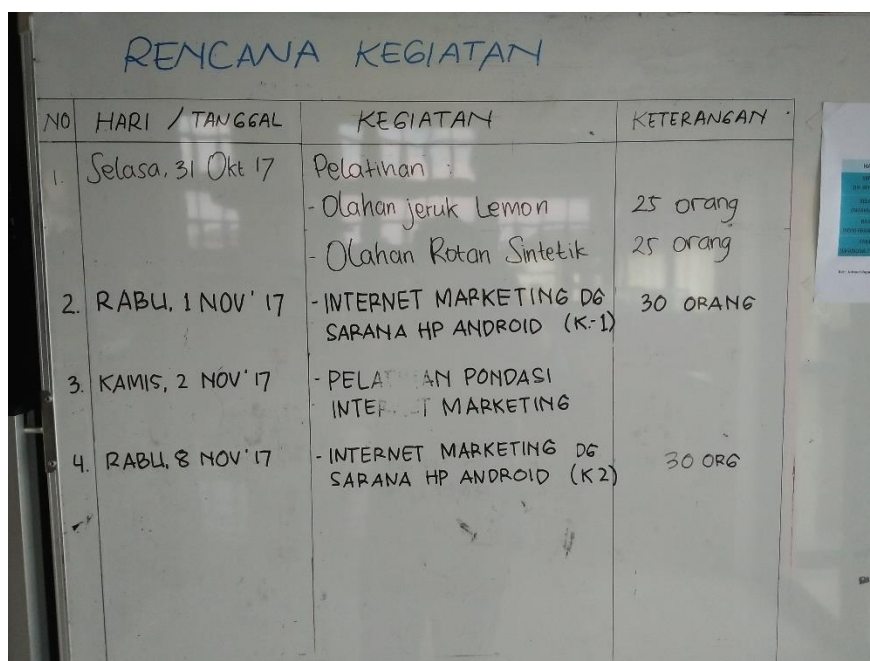 RENCANA KEGIATAN
NO HARI / TANGGAL KEGIATAN KETERANGAN
1. Selasa, 31 Okt 17 Pelatihan :
- Olahan jeruk Lemon 25 orang
- Olahan Rotan Sintetik 25 orang
2. RABU, 1 NOV' 17 - INTERNET MARKETING DG 30 ORANG
SARANA HP ANDROID (K-1)
3. KAMIS, 2 NOV' 17 - PONDASI
MARKETING
4. RABU, 8 NOV' 17 - INTERNET MARKETING DG 30 ORG
SARANA HP ANDROID (K2)